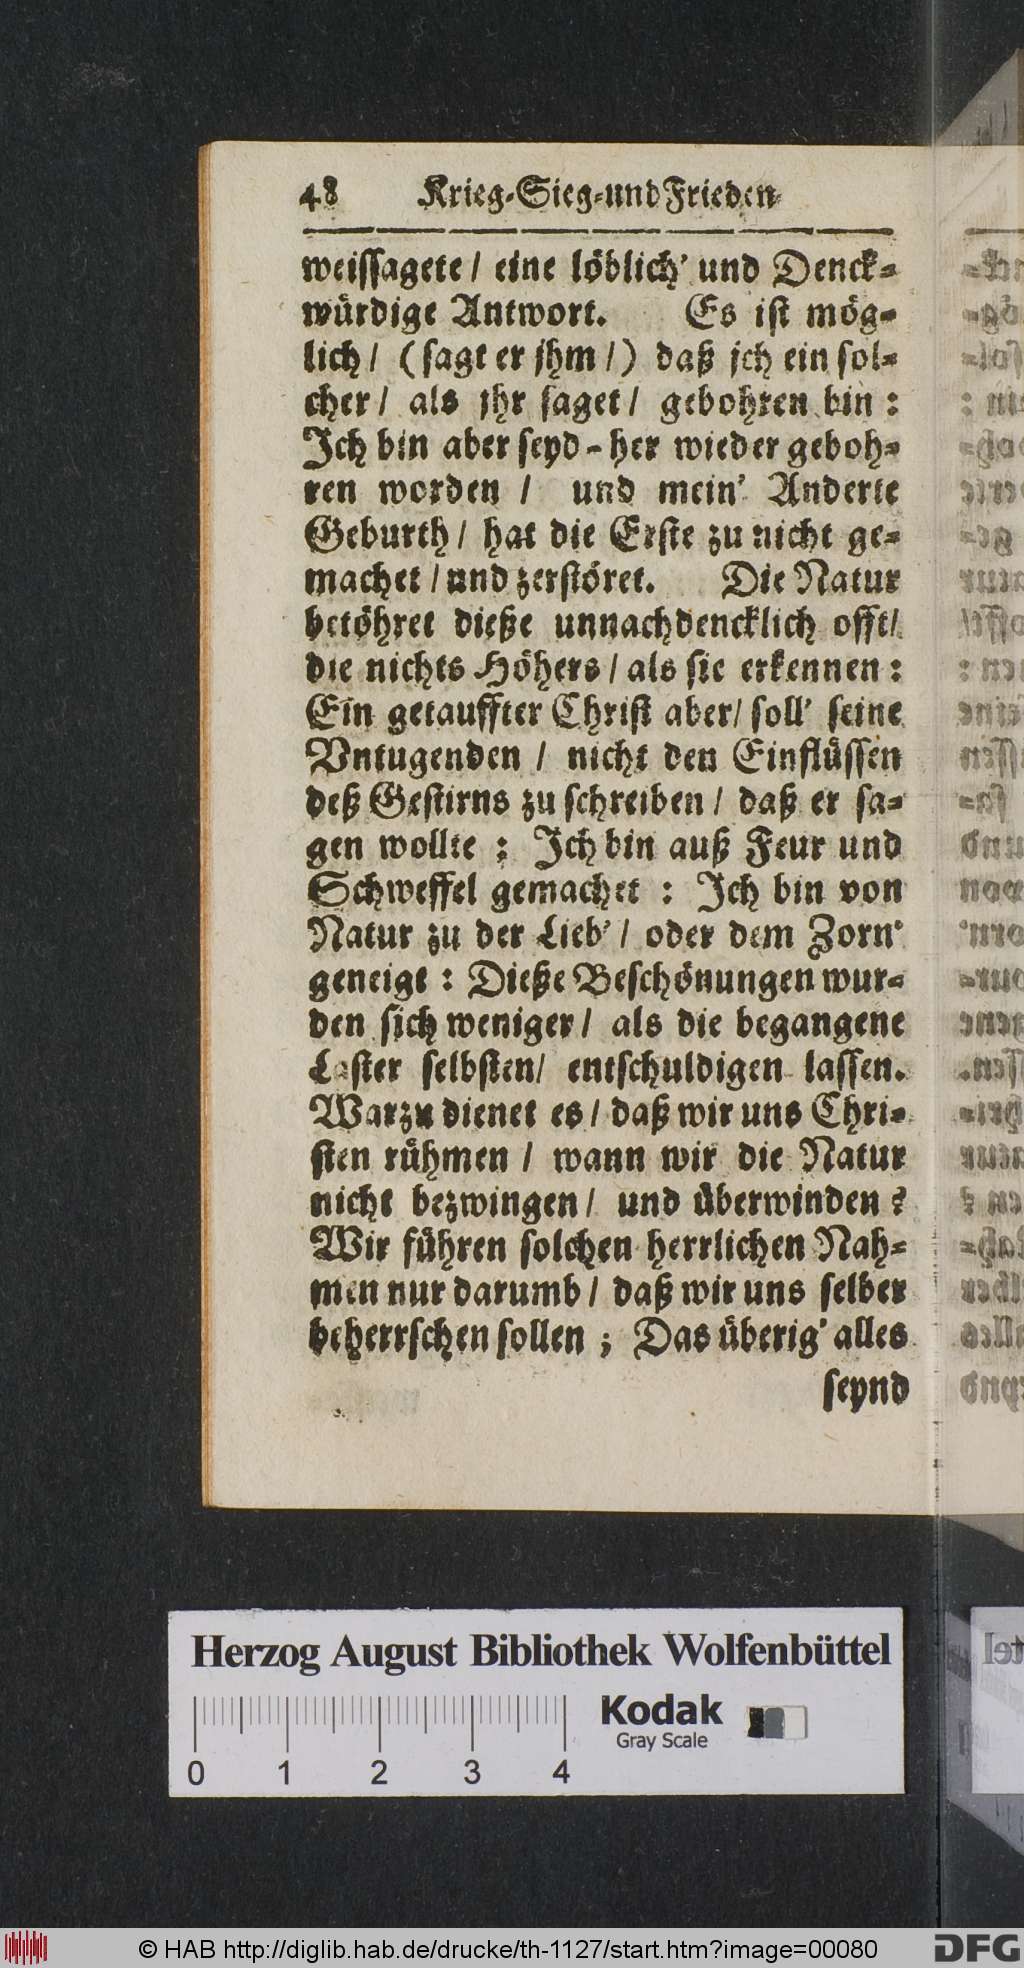 48 Krieg-Sieg-und Frieden-
weissagete / eine löblich' und Denck-
würdige Antwort. Es ist mög-
lich / (sagt er jhm /) daß jch ein sol-
cher / als jhr saget / gebohren bin :
Ich bin aber seyd-her wieder geboh-
ren worden / und mein' Anderte
Geburth / hat die Erste zu nicht ge-
machet / und zerstöret. Die Natur
betöhret dieße unnachdencklich offt /
die nichts Höhers / als sie erkennen :
Ein getauffter Christ aber / soll' seine
Vntugenden / nicht den Einflüssen
deß Gestirns zu schreiben / daß er sa-
gen wollte ; Ich bin auß Feur und
Schweffel gemachet : Ich bin von
Natur zu der Lieb' / oder dem Zorn'
geneigt : Dieße Beschönungen wur-
den sich weniger / als die begangene
Laster selbsten / entschuldigen lassen.
Warzu dienet es / daß wir uns Chri-
sten rühmen / wann wir die Natur
nicht bezwingen / und überwinden ?
Wir führen solchen herrlichen Nah-
men nur darumb / daß wir uns selber
beherrschen sollen ; Das überig' alles
seynd
Herzog August Bibliothek Wolfenbüttel
Kodak
Gray Scale
0 1 2 3 4
© HAB http://diglib.hab.de/drucke/th-1127/start.htm?image=00080
DFG